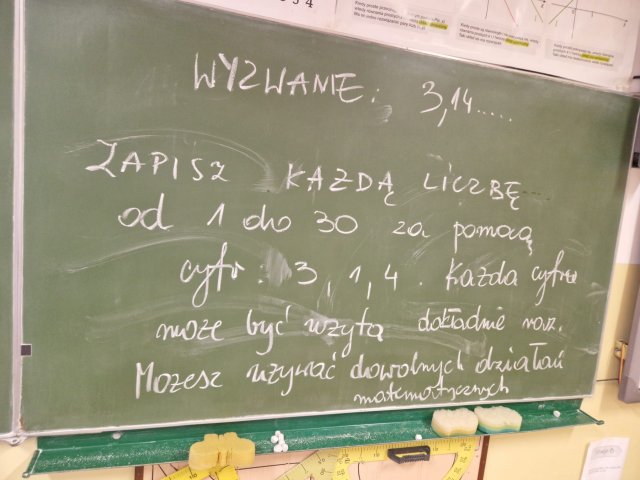 WYZWANIE: 3,14.....
ZAPISZ KAŻDĄ LICZBĘ
od 1 do 30 za pomocą
cyfr: 3, 1, 4. Każda cyfra
może być użyta dokładnie raz.
Możesz używać dowolnych działań
matematycznych